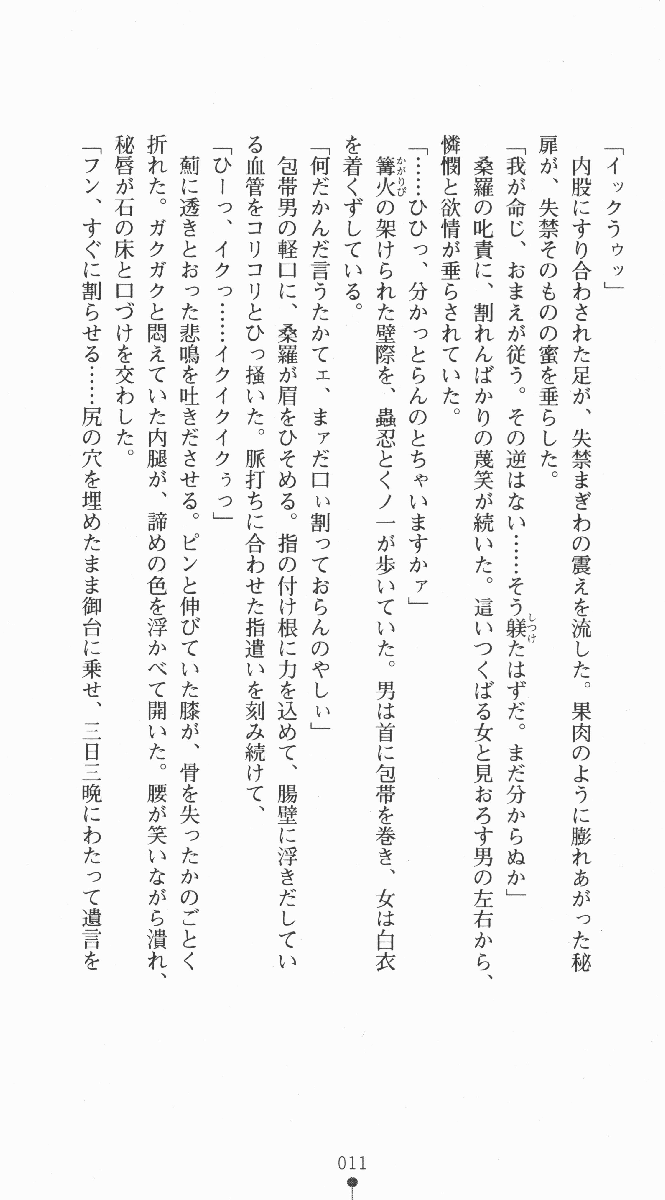 「イックうゥッ」
　内股にすり合わされた足が、失禁まぎわの震えを流した。果肉のように膨れあがった秘
扉が、失禁そのものの蜜を垂らした。
「我が命じ、おまえが従う。その逆はない……そう躾たはずだ。まだ分からぬか」
しつけ
　桑羅の叱責に、割れんばかりの蔑笑が続いた。這いつくばる女と見おろす男の左右から、
憐憫と欲情が垂らされていた。
「……ひひっ、分かっとらんのとちゃいますかァ」
　篝火の架けられた壁際を、蟲忍とくノ一が歩いていた。男は首に包帯を巻き、女は白衣
かがりび
を着くずしている。
「何だかんだ言うたかてェ、まァだ口ぃ割っておらんのやしぃ」
　包帯男の軽口に、桑羅が眉をひそめる。指の付け根に力を込めて、腸壁に浮きだしてい
る血管をコリコリとひっ掻いた。脈打ちに合わせた指遣いを刻み続けて、
「ひーっ、イクっ……イクイクイクぅっ」
　薊に透きとおった悲鳴を吐きださせる。ピンと伸びていた膝が、骨を失ったかのごとく
折れた。ガクガクと悶えていた内腿が、諦めの色を浮かべて開いた。腰が笑いながら潰れ、
秘唇が石の床と口づけを交わした。
「フン、すぐに割らせる……尻の穴を埋めたまま御台に乗せ、三日三晩にわたって遺言を
011